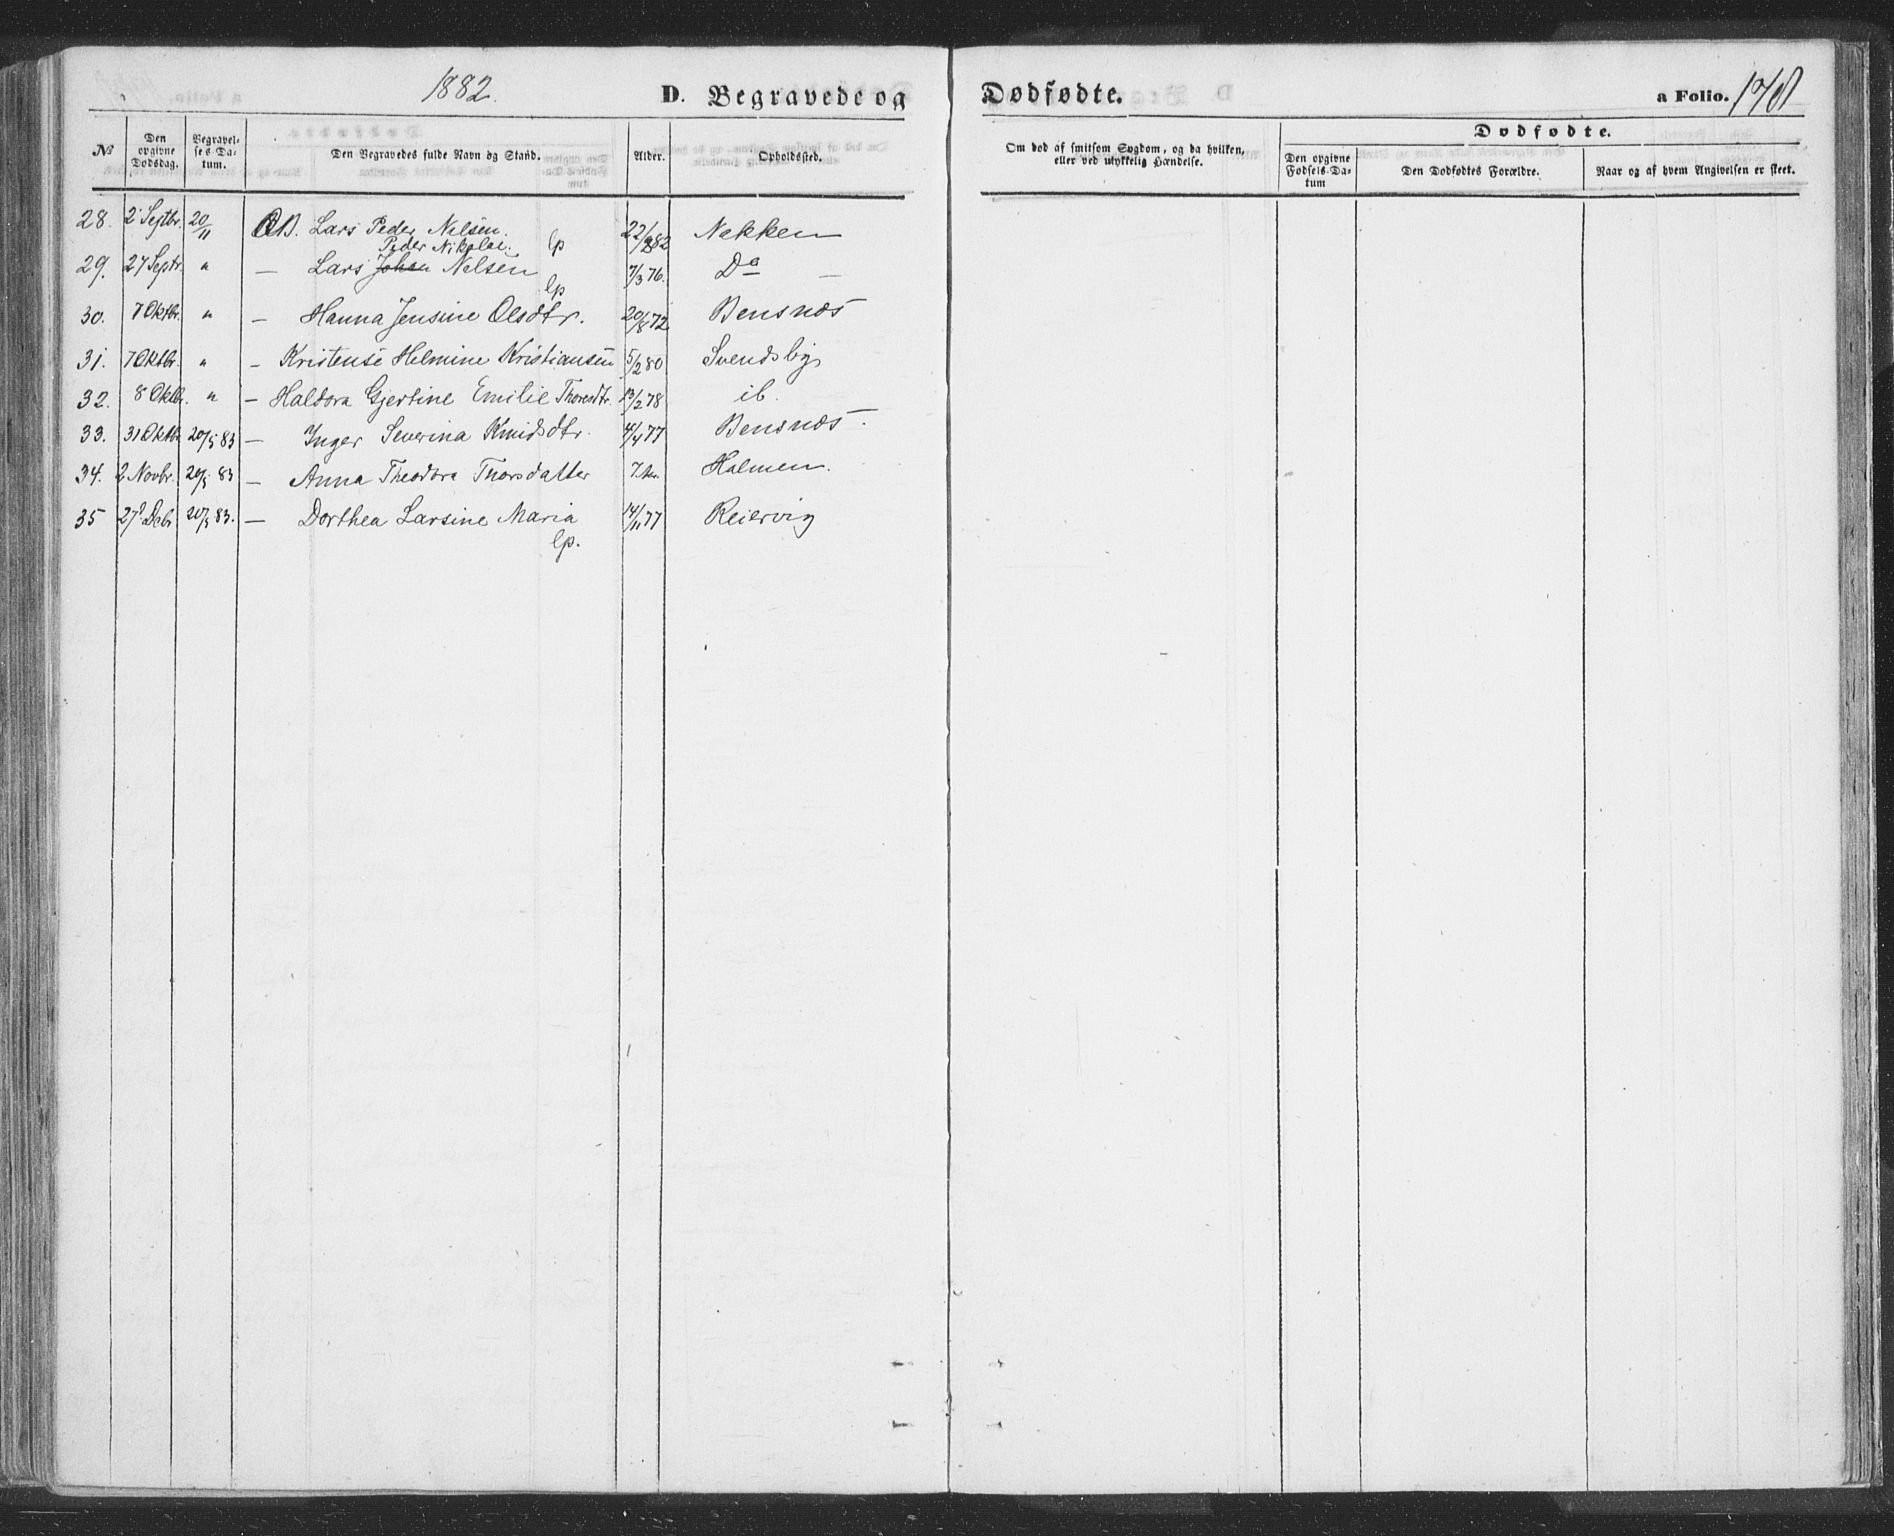 1882. D. Begravede og Dødfødte. a Folio. 178
Dødfødte.
№ Den opgivne Dødsdag. Begravelses-Datum. Den Begravedes fulde Navn og Stand. Alder. Opholdsted. Om død af smitsom Sygdom, og da hvilken, eller ved ulykkelig Hændelse. Den opgivne Fødsels-Datum Den Dødfødtes Forældre. Naar og af hvem Angivelsen er skeet.
28. 2 Septbr. 20/11 Lars Peder Nilsen. lp 22/882 Nakken
Peder Nikolai.
29. 27 Septr. " — Lars Johan Nilsen lp 7/376. Do —
30. 7 Oktbr. " — Hanna Jensine Olsdtr. 20/872 Bensnæs
31. 7 Oktbr. " — Kristense Helmine Kristiansen 5/280 Svendsby
32. 8 Oktbr. " — Haldora Gjertine Emilie Thoresdtr. 13/278 ib.
33. 31 Oktbr. 20/5 83 — Inger Severina Knudsdtr. 4/477 Bensnæs.
34. 2 Novbr. 20/5 83 — Anna Theodora Thorsdatter Holmen.
35 27 Debr 20/5 83. — Dorthea Larsine Maria 14/1177 Reiervig
lp.